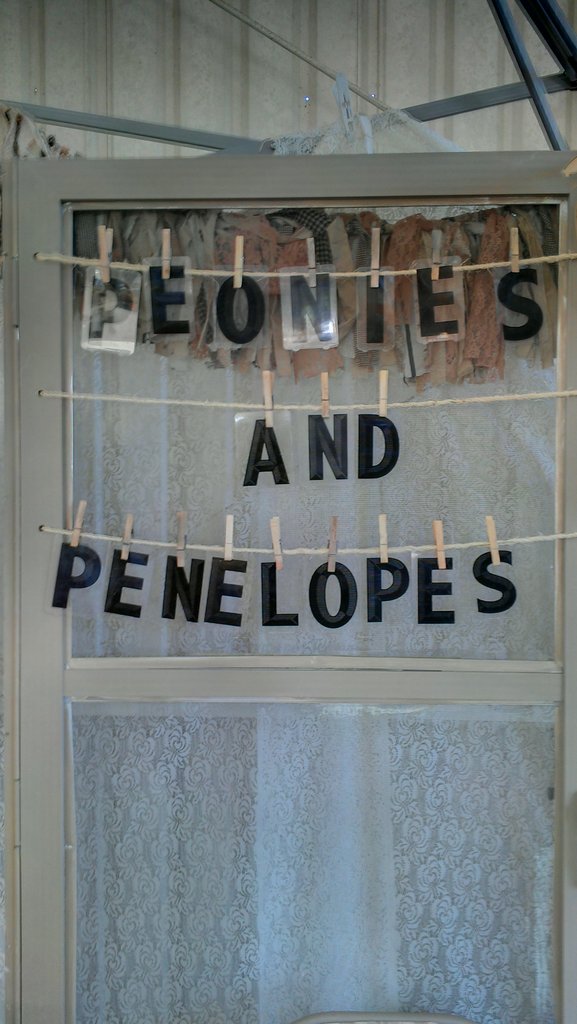 PEONIES
AND
PENELOPES